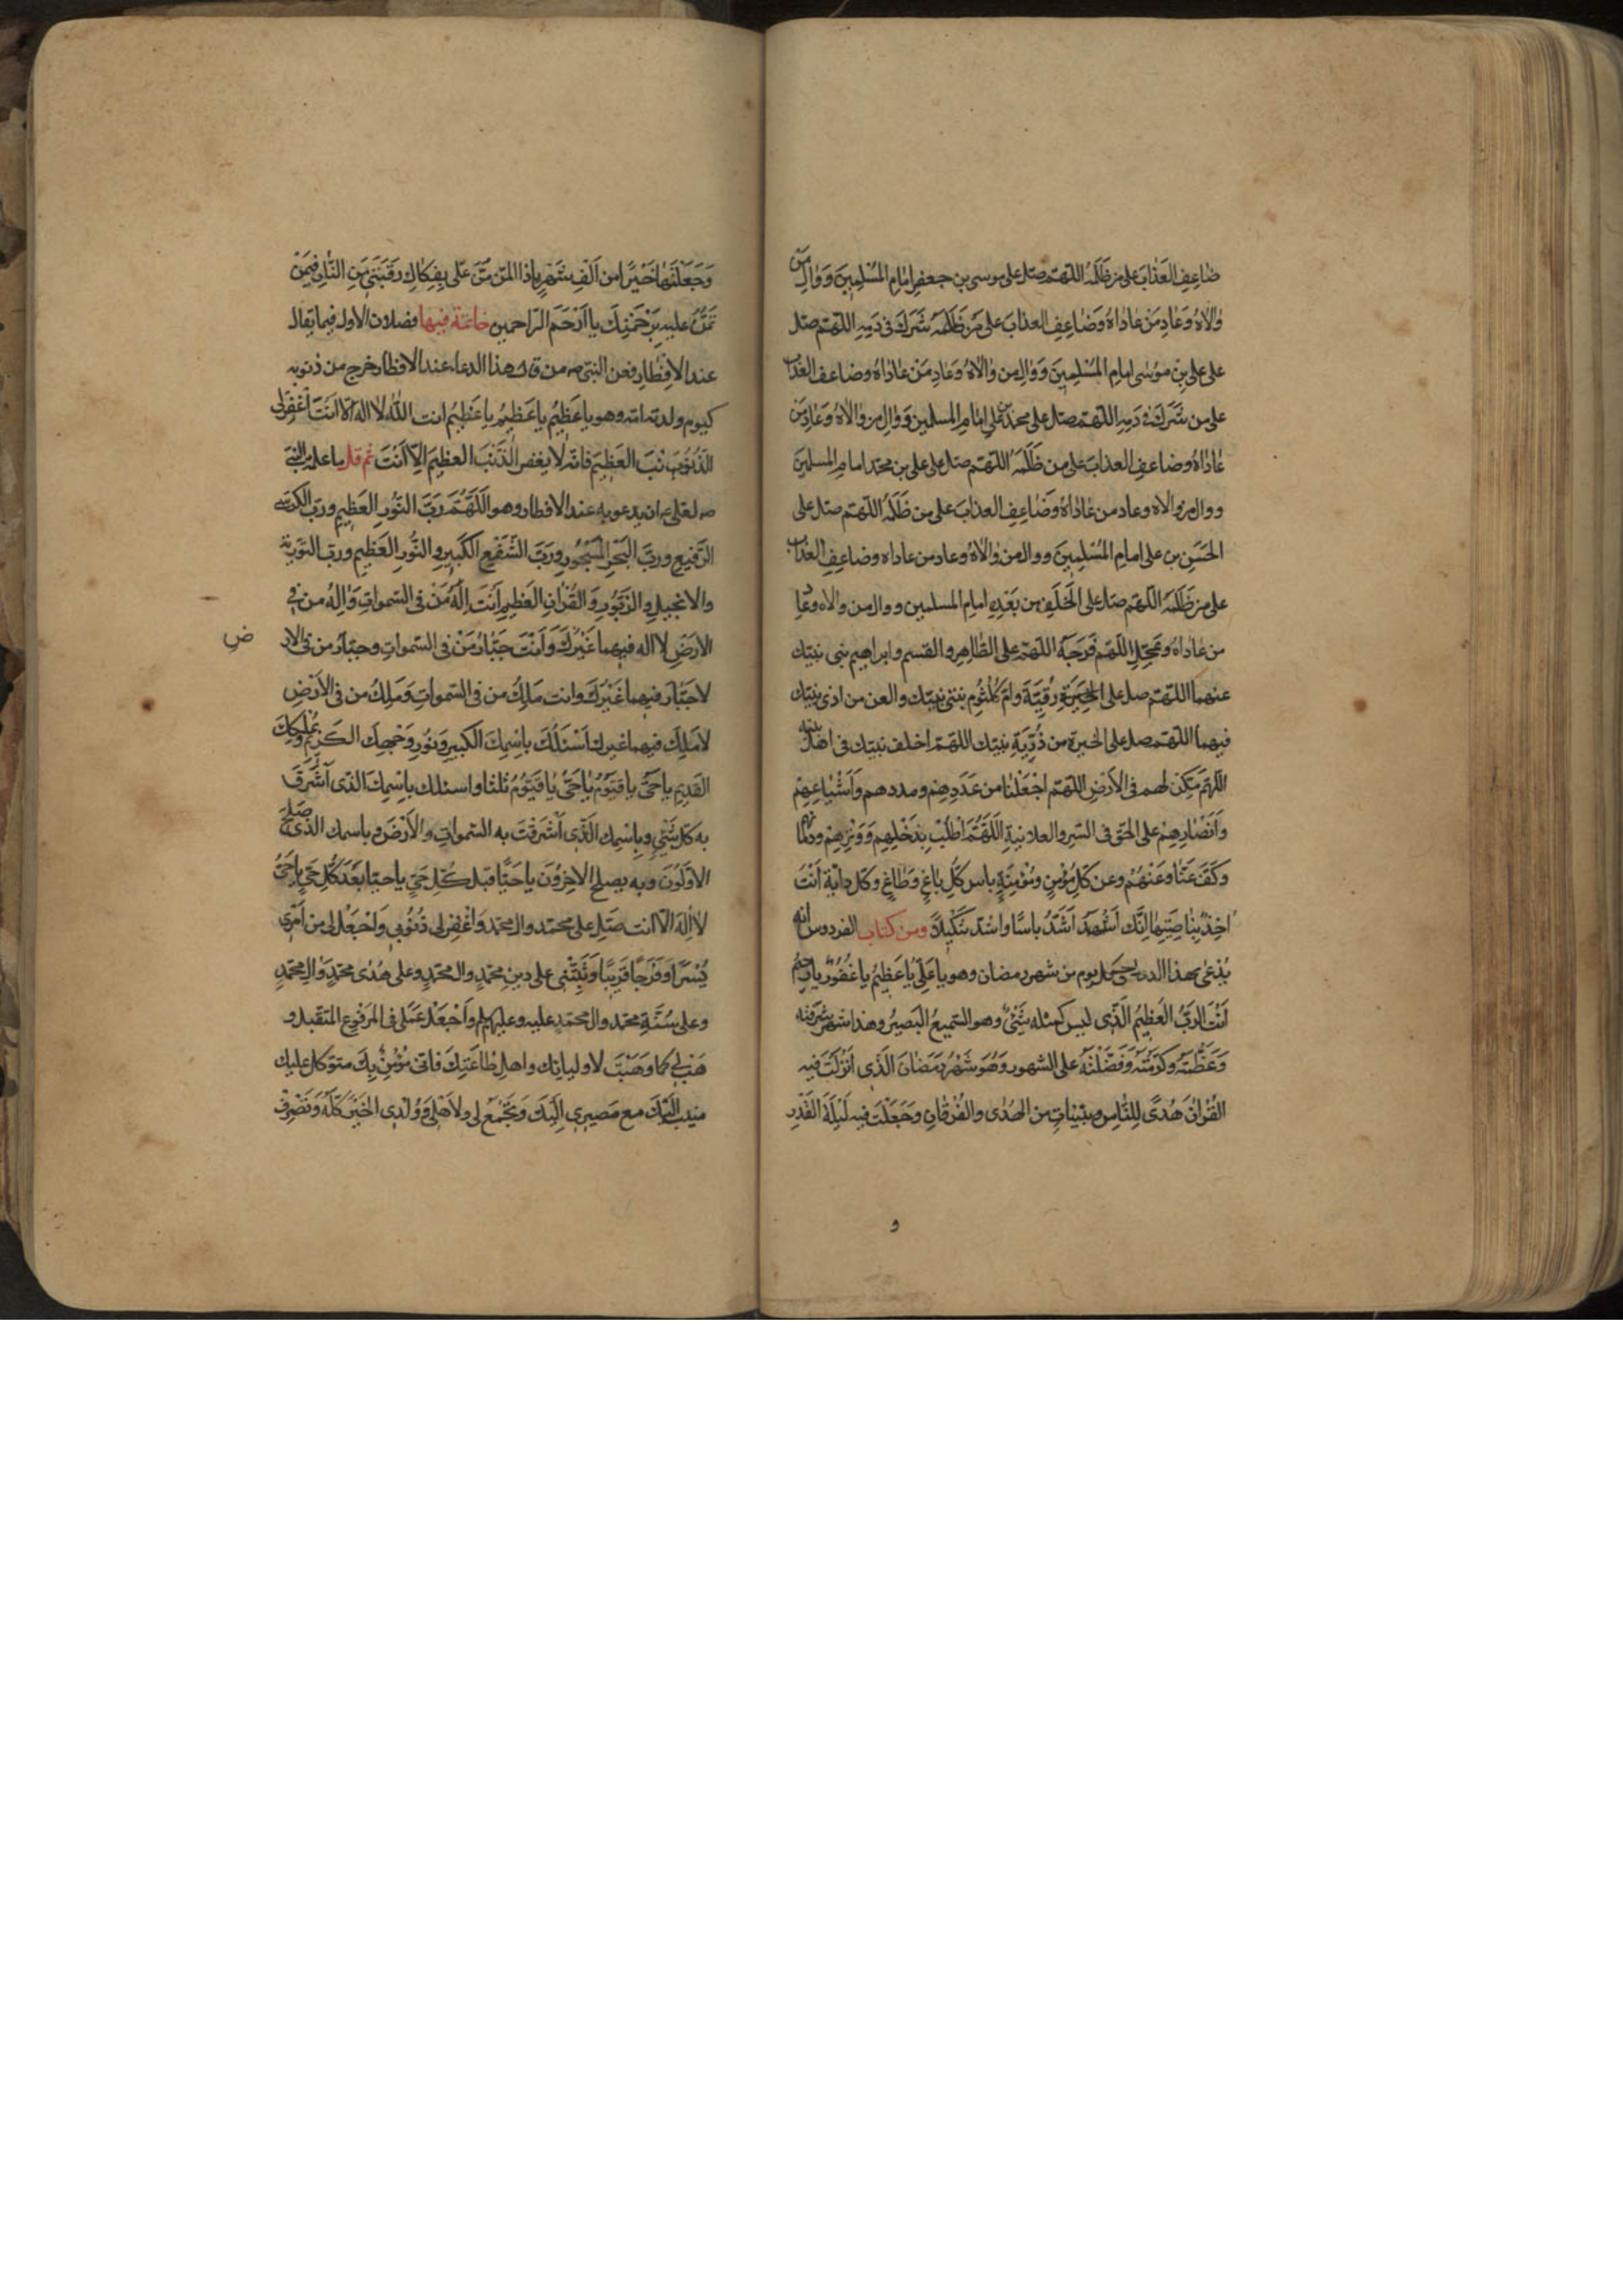 ضاعِفِ العَذابَ على من ظَلَمَهُ اللّهمّ صلّ على موسى بن جعفرٍ امامِ المُسْلِمينَ وَوالِ مَن
والاهُ وَعادِ مَنْ عاداهُ وَضاعِفِ العذابَ على مَن ظَلَمَهُ شَرَكَ فى دَمِهِ اللّهمّ صلّ
على على بن موسى امامِ المُسْلِمينَ وَوالِ من والاهُ وَعادِ مَنْ عاداهُ وضاعف العذاب
على من شَرَكَ فى دَمِهِ اللّهمّ صلّ على محمد بن على امامِ المسلمين وَوالِ من والاهُ وَعادِ مَن
عاداهُ وضاعفِ العذابَ على من ظَلَمَهُ اللّهمّ صلّ على على بن محمّد امامِ المسلمينَ
ووالِ من والاه وعاد من عاداهُ وَضاعِفِ العذابَ على من ظَلَمَهُ اللّهمّ صلّ على
الحَسَنِ بن على امامِ المُسْلِمينَ ووال من والاهُ وعاد من عاداه وضاعِفِ العذاب
على من ظَلَمَهُ اللّهمّ صلّ على الخَلَفِ من بَعْدِهِ امامِ المسلمين ووال من والاه وعاد
من عاداهُ وعَجِّلِ اللّهمّ فَرَجَهُ اللّهمّ على الطّاهِرِ والقسم وابراهيم بنى نبيّك
عنهما اللّهمّ صل على الخِيَرَةِ رُقِيَّةَ وامّ كُلْثُومِ بنتى نبيّك والعن من اذى نبيّك
فيهما اللّهمّ صل على الخيرة من ذُرِّيَةِ نبيّك اللّهمّ اخلف نبيّك فى اهل بيته
اللّهمّ مَكِّنْ لهم فى الاَرْضِ اللّهمّ اجْعَلْنا من عَدَدِهِمْ ومددهم وَأشْياعِهِمْ
وَاَنْصارِهِمْ على الحَقِّ فى السّرِ والعلانيةِ اللّهُمَّ اطْلُبْ بِذَحْلِهِم وَوَتْرِهِمْ ودمائهم
وَكُفَّ عَنّا وَعَنْهُمْ وعن كلّ مُؤْمِنٍ ومُؤْمِنَةٍ باس كلِّ باغٍ وَطاغٍ وكلّ دابّة اَنْتَ
اخِذٌ بِناصِيَتِها اِنَّكَ اَشَدُّ باسًا واشدّ تَنْكيلاً ومن كتاب الفردوس انه
يُدْعى بهذا كل يوم من شهر رمضان وهو يا عَلِىُّ يا عَظِيمُ يا غَفُورُ يا رحيم
اَنْتَ الرَّبُّ العَظيمُ الّذى ليس كمثله شَئٌ وهو السّميعُ البَصيرُ وهذا شهر شرّفته
وَعَظَّمْتَهُ وَكَرَّمْتَهُ وَفَضَّلْتَهُ على الشهور وَهُوَ شَهْرُ رَمَضانَ الّذى اَنْزَلْتَ فيه
القُرْانَ هُدًى لِلنّاسِ وبيّناتٍ من الهُدى والفُرْقانِ وَجَعَلْتَ فيه لَيْلَةَ القَدْرِ
و
وَجَعَلْتَها خَيْرًا من اَلْفِ شَهْرٍ يا ذا المَنِّ مُنَّ عَلَى بِفِكاكِ رَقَبَتى مِنَ النّارِ فيمَنْ
تَمُنُّ عليه بِرَحْمَتِكَ يا اَرْحَمَ الرّاحمين خاتمة فيها فصلان الاول فيما يقال
عند الافْطارِ فعن النبّى ص من قال هذا الدعاء عند الافطار خرج من ذنوبه
كيوم ولدته امّه وهو يا عَظِيمُ يا عَظِيمُ يا عَظيمُ انت اللّهُ لا اله الّا اَنْتَ اغْفِرْلى
الذّنْبَ العَظيمَ فانّه لا يغفر الذّنْبَ العظيمَ الّا اَنْتَ ثم قل ما علّمه النبى
ص لعلى ع ان يدعو به عند الافطار وهو اللّهُمَّ رَبَّ النّورِ العَظيمِ وربّ الكرسى
الرّفيعِ وربَّ البَحْرِ المَسْجُورِ وَرَبَّ الشَّفْعِ الكَبيرِ والنُّورِ العَظيمِ وربّ التورية
والانجيلِ والزّبُورِ وَالقُرْانِ العَظيمِ اَنْتَ اِلهُ مَنْ فى السّمواتِ وَاِلهُ من فى
الارْضِ لا اله فيهما غَيْرُكَ وَاَنْتَ جَبّارُ مَنْ فى السّمواتِ وجبّارُ من فى الار
ضِ
لا جَبّارَ فيهما غَيْرُكَ وانت مَلِكُ من فى السّمواتِ وَمَلِكُ من فى الاَرْضِ
لا مَلِكَ فيهما غيرك اَسْئَلُكَ بِاسْمِكَ الكبيرِ وَنُورِ وَجْهِكَ الكَريمِ وبمُلكِكَ
القَديمِ يا حَىُّ يا قَيّومُ يا حَىُّ يا قَيّومُ ثلثا واسئلك بِاسْمِكَ الّذى اَشْرَقَ
به كلّ شَئٍ وبِاسْمِكَ الّذى اَشْرَقَتْ به السّمواتِ والاَرْضَ وباسمك الّذى صَلَحَ
الاوّلُونَ وبه يصلح الاخِرُونَ يا حَيًّا قبل كُلِّ حَىٍّ يا حيّا بَعْدَ كُلِّ حَىٍّ يا حَىُّ
لا اِلهَ الّا انت صَلّ على محمّد وال محمّد وَاغْفِرلى ذُنُوبى وَاجْعَلْ لى من اَمْرى
يُسْرًا وَفَرَجًا قَريبًا وَثَبِّتْنى على دينِ محمّدٍ وال محمّدٍ وعلى هُدى محمّدٍ وَالِ محمّدٍ
وعلى سُنّةِ محمّد وال محمّدٍ عليه وعليهم وَاجْعَلْ عَمَلى فى المَرْفُوعِ المتَقبّل و
هَبْ لى كما وَهَبْتَ لاوليائك واهلِ طاعَتِكَ فانّى مُؤْمِنٌ بِكَ متوكّل عليك
منيب اِلَيْكَ مع مَصيرى اِلَيْكَ وَتَجْمَعُ لى ولاَهْلى وَوُلْدى الخَيْرَ كُلَّهُ وَتَصْرِفُ